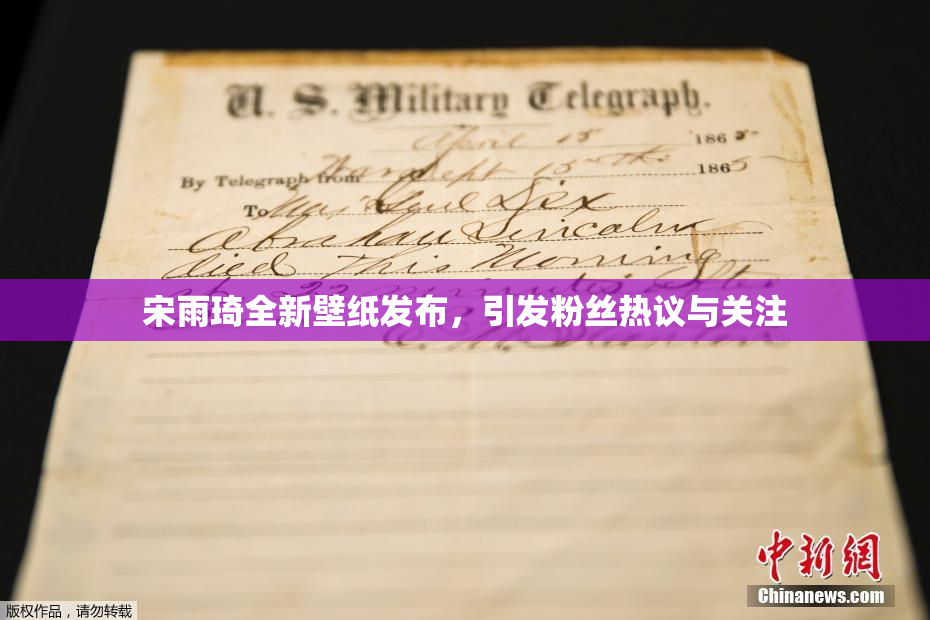 U. S. Military Telegraph.
April 15 1865
By Telegraph from War Dept 15th 1865
To Maj Genl Dix
Abraham Lincoln
died This Morning
at 22 minutes after
宋雨琦全新壁纸发布，引发粉丝热议与关注
中新網
Chinanews.com
版权作品，请勿转载